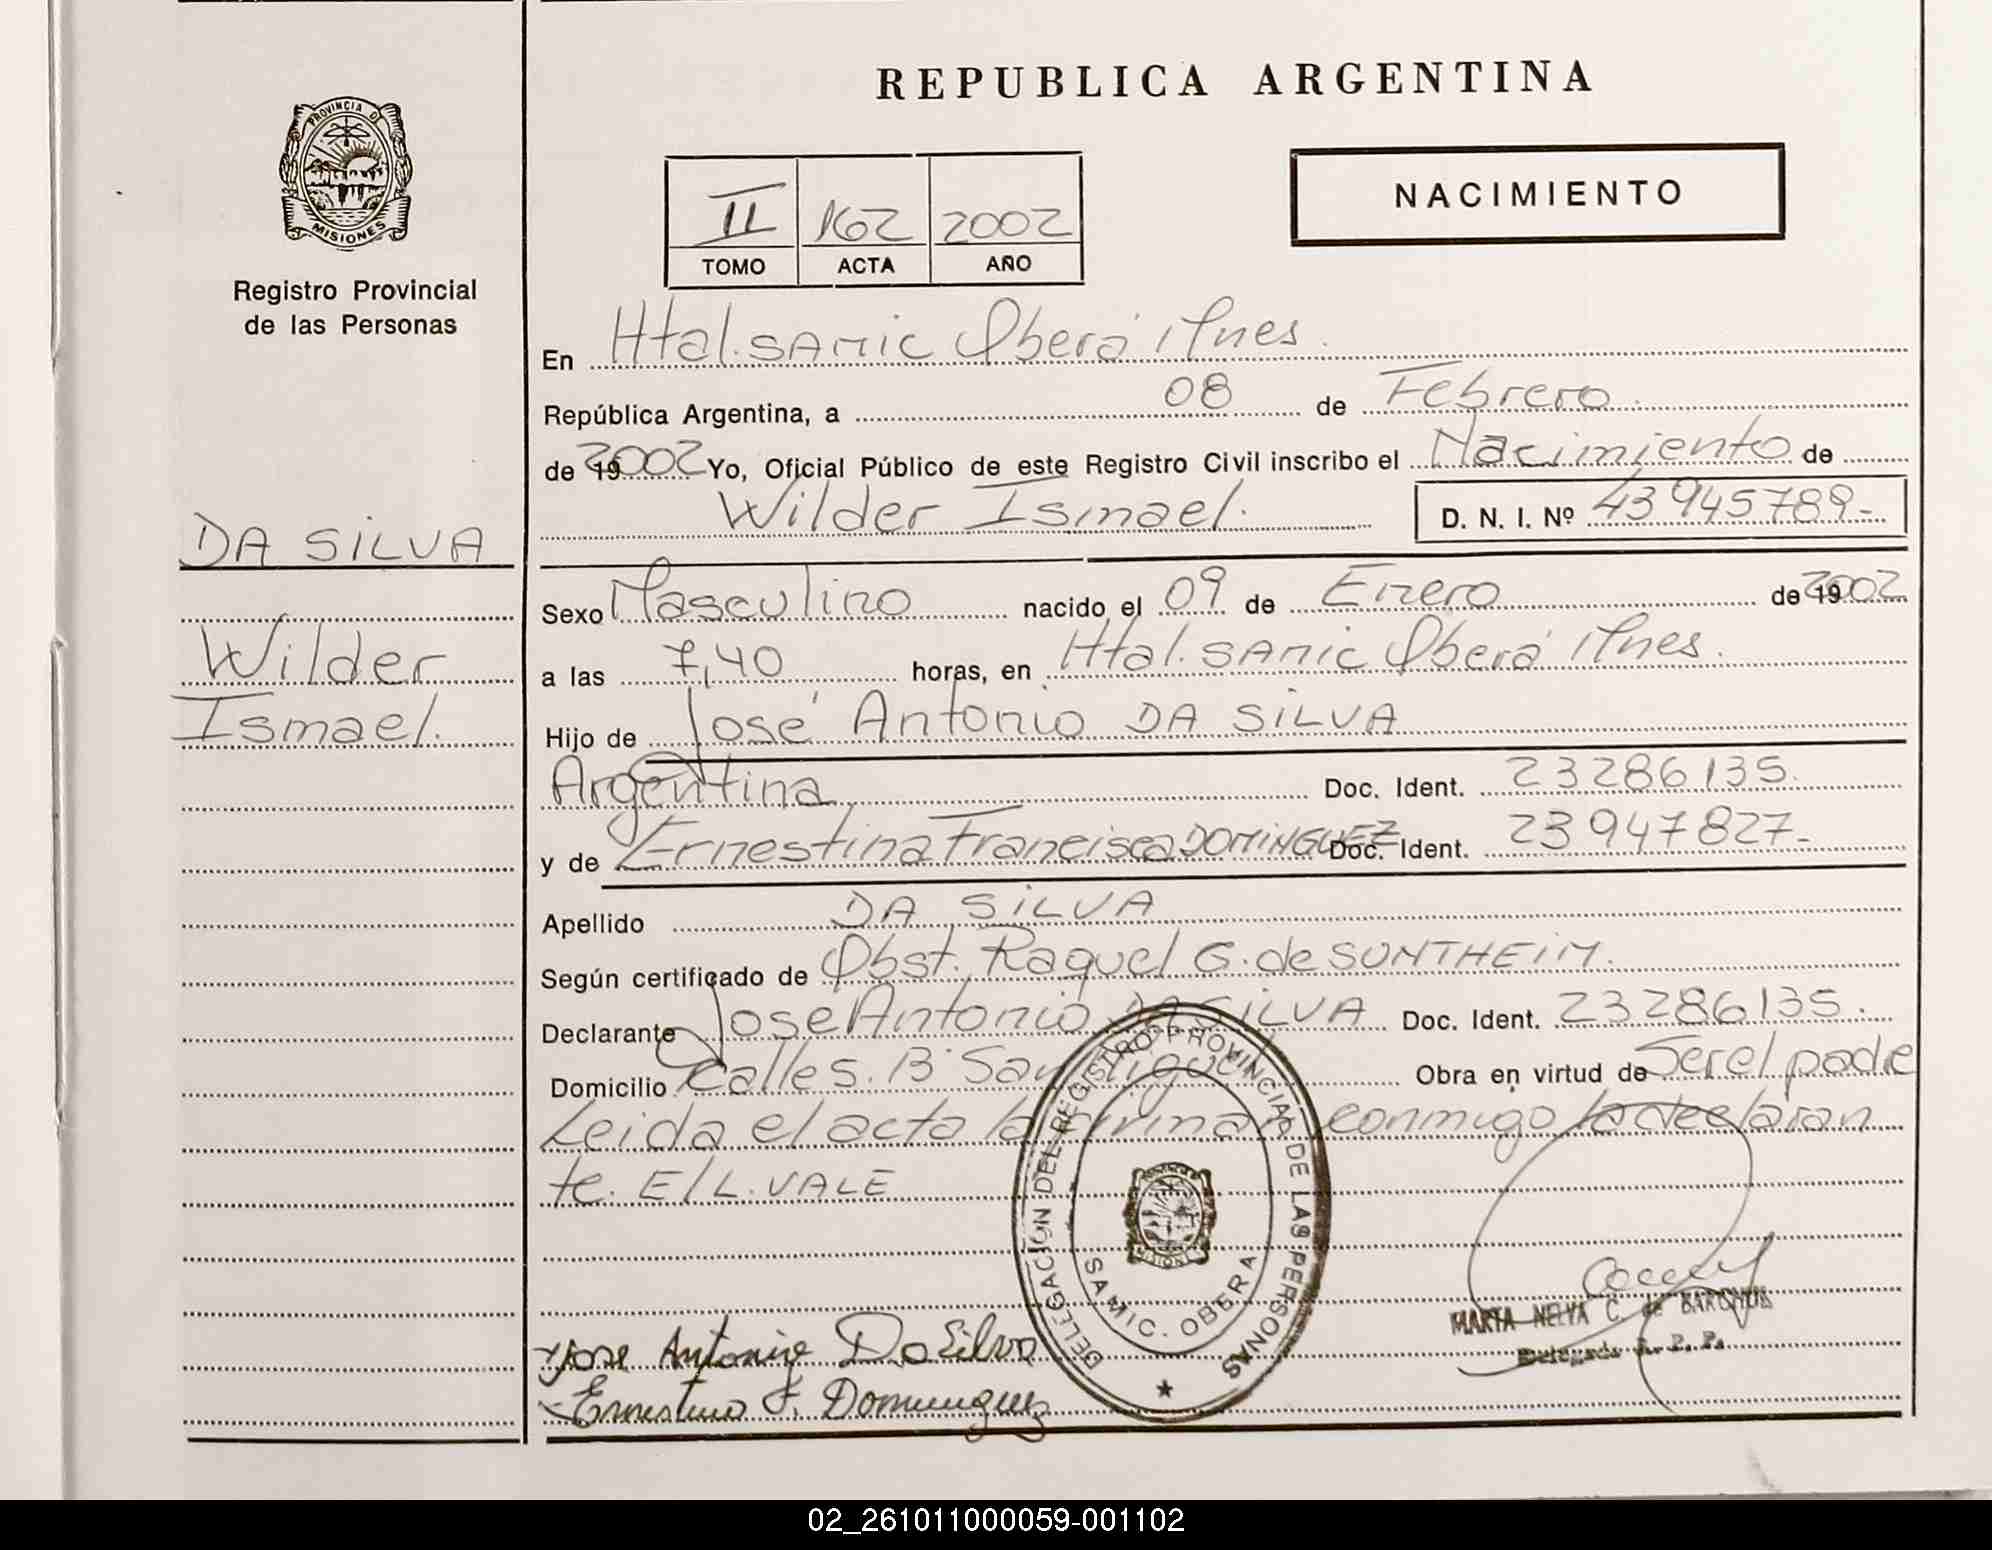 REPUBLICA ARGENTINA
PROVINCIA DE
MISIONES
Registro Provincial
de las Personas
II 162 2002
TOMO ACTA AÑO
NACIMIENTO
En Htal. SAMIC Oberá, Mnes.
República Argentina, a 08 de Febrero
de 2002 Yo, Oficial Público de este Registro Civil inscribo el Nacimiento de
Wilder Ismael. D. N. I. Nº 43945789-
DA SILVA
Wilder
Ismael.
Sexo Masculino nacido el 09 de Enero de 2002
a las 7,40 horas, en Htal. SAMIC Oberá Mnes.
Hijo de José Antonio DA SILVA
Argentina Doc. Ident. 23286135.
y de Ernestina Francisca DOMINGUEZ Doc. Ident. 23947827-
Apellido DA SILVA
Según certificado de Obst. Raquel G. de SUNTHEIM.
Declarante José Antonio DA SILVA Doc. Ident. 23286135.
Domicilio Calle s. B: San Miguel Obra en virtud de Ser el padre
Leida el acta la firman conmigo la declaran
te. E/L. VALE
DELEGACION DEL REGISTRO PROVINCIAL DE LAS PERSONAS
SAMIC. OBERA
MISIONES
Jose Antonio Da Silva
Ernestina F. Dominguez
MARTA NELVA C. de
Delegada R. P. P.
02_261011000059-001102